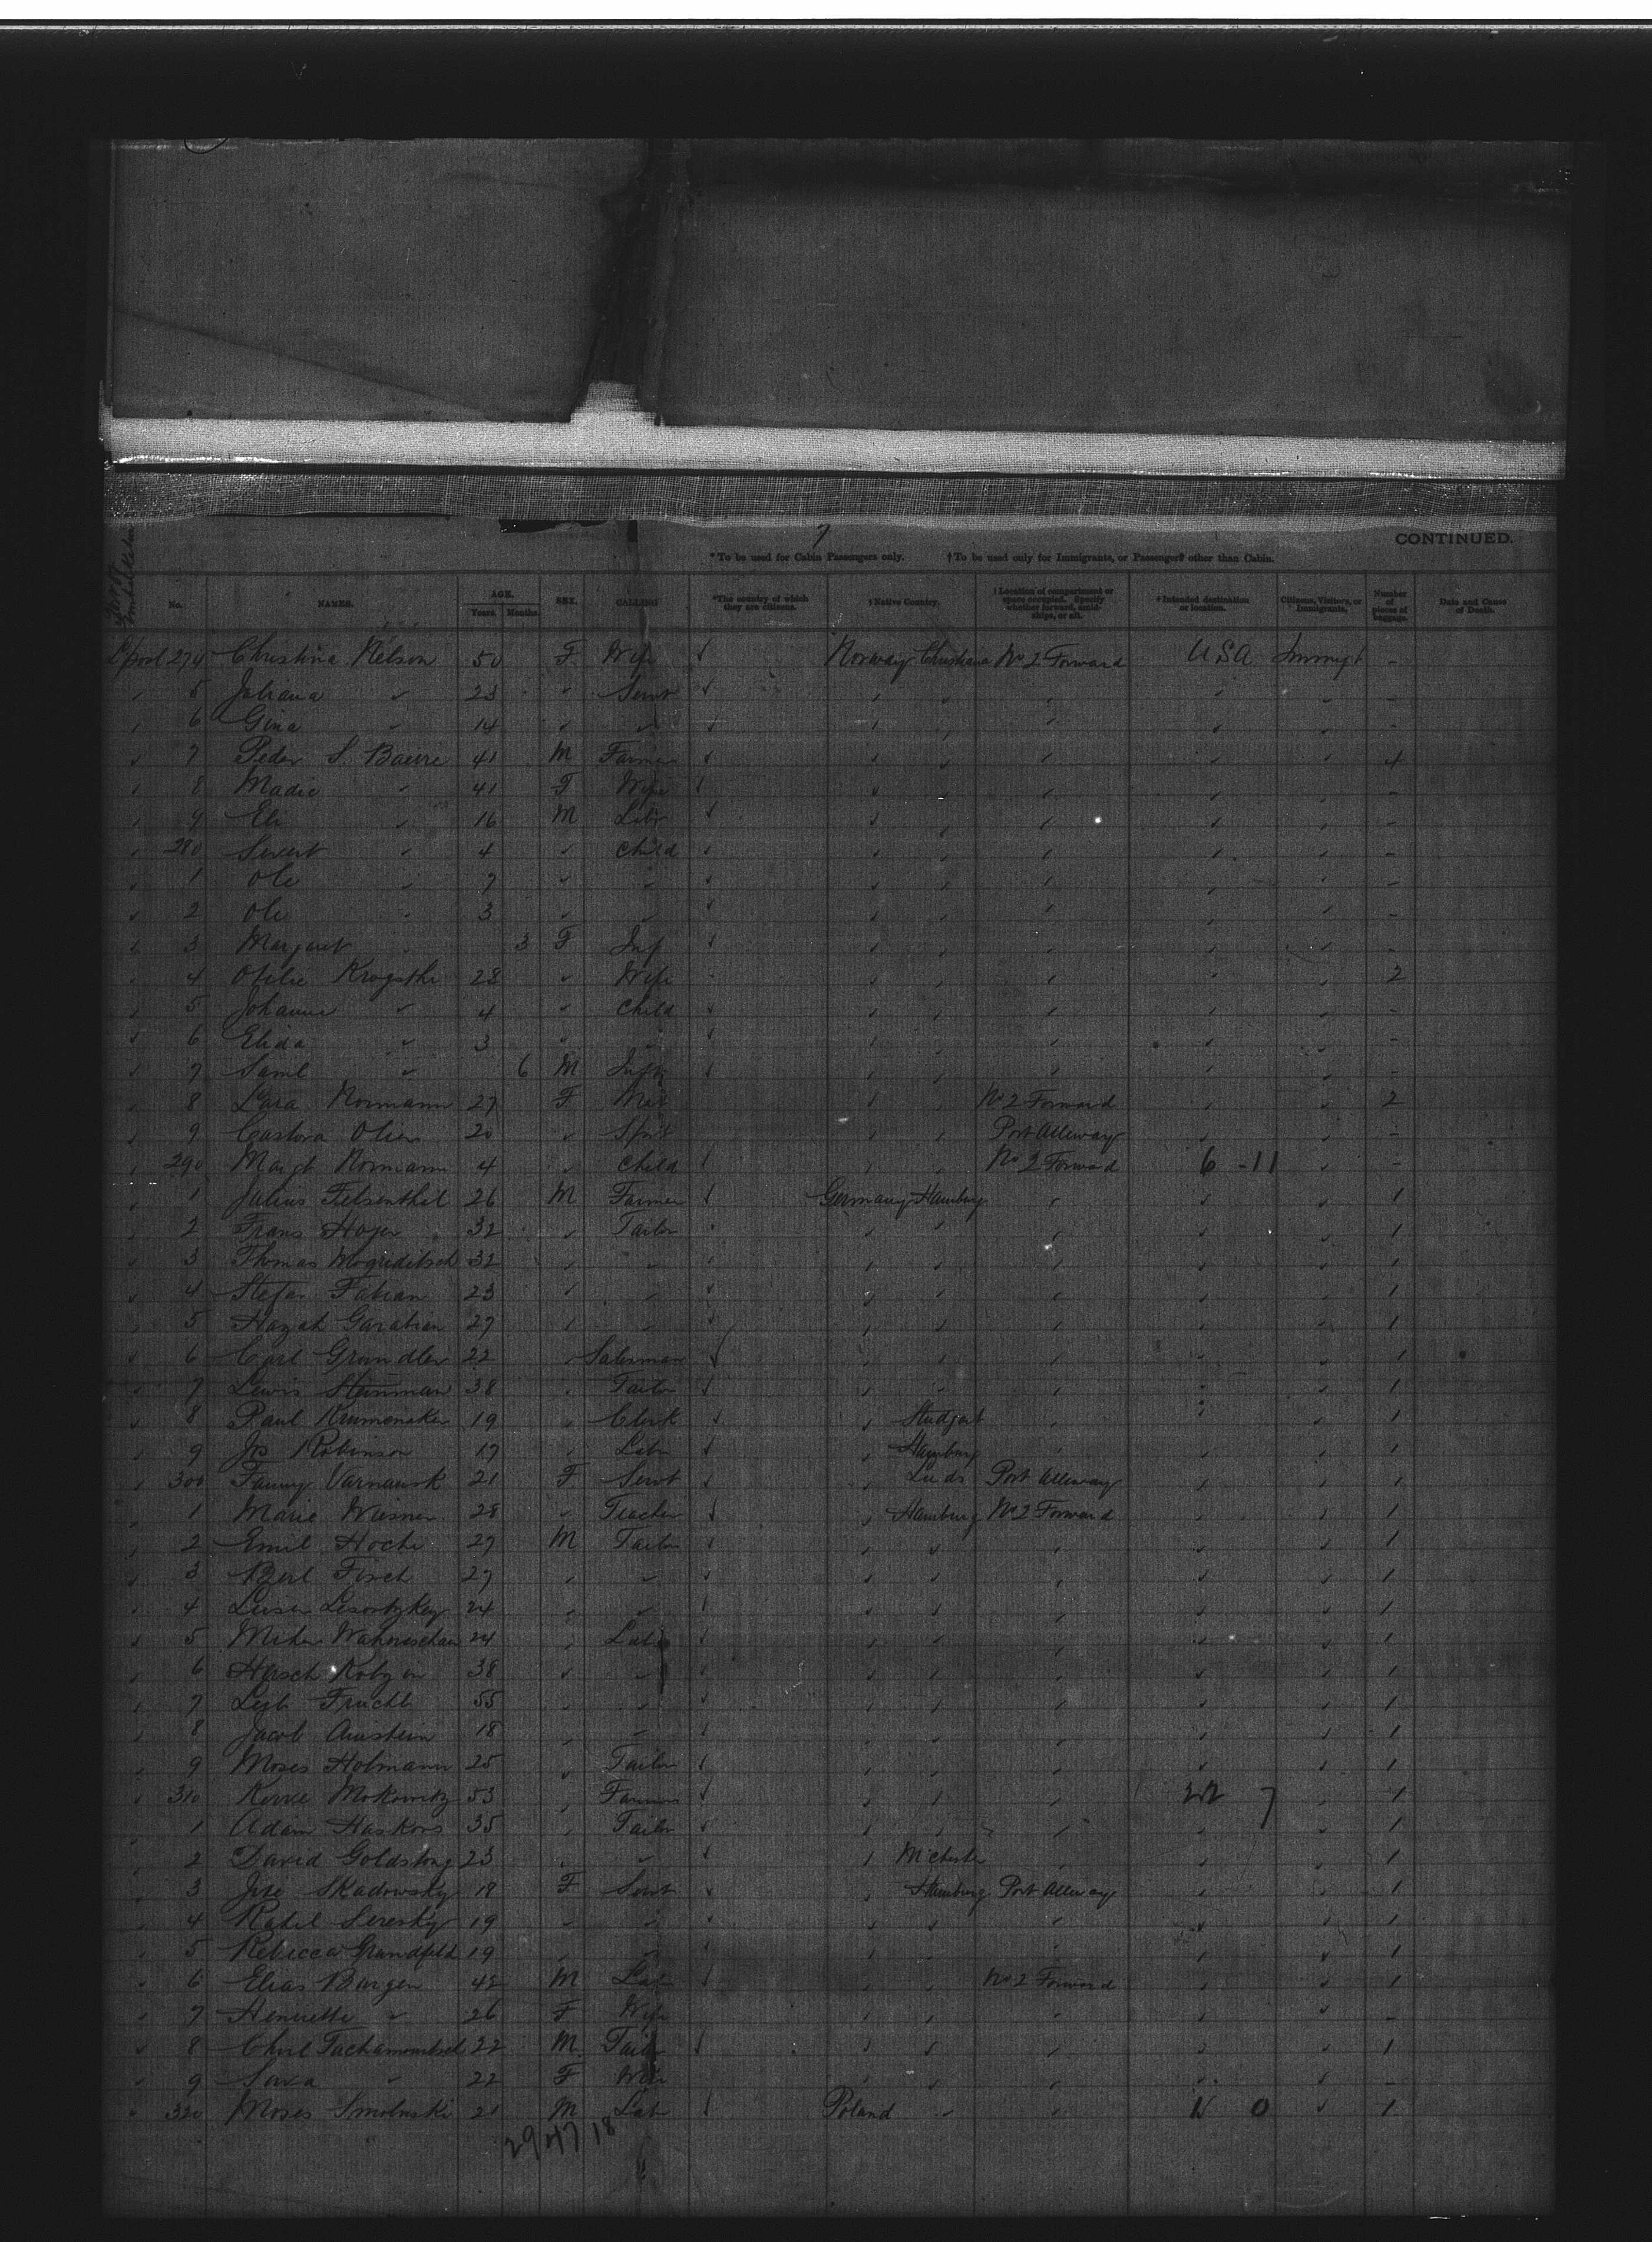 7
CONTINUED.
*To be used for Cabin Passengers only. †To be used only for Immigrants, or Passengers other than Cabin.
No. NAMES. AGE. Years. Months. SEX. CALLING *The country of which they are citizens. †Native Country. †Location of compartment or space occupied. Specify whether forward, amidships, or aft. †Intended destination or location. Citizens, Visitors, or Immigrants. Number of pieces of baggage. Date and Cause of Death.
L'pool 274 Christina Nelson 50 F Wife Norway Christiana No 2 Forward USA Immigt -
5 Juliana " 23 " Servt
6 Gina " 14 " "
7 Peder S. 41 M Farmer 4
8 Madie " 41 F Wife -
9 Eli " 16 M Labr -
280 Sivert " 4 " Child -
1 Ole " 7 " " -
2 Ole " 3 " " -
3 Margaret " 3 F Inf -
4 Otilie 28 " Wife 2
5 Johanne " 4 " Child -
6 Elida " 3 " " -
7 Saml " 6 M Inft -
8 Lara Normann 27 F No 2 Forward 2
9 Olien 20 " Spst Port Alleway -
290 Margt Normann 4 " Child No 2 Forward 6 - 11 -
1 Julius Felsenthal 26 M Farmer Germany Hamburg 1
2 Frans Hojer 32 " Tailor 1
3 Thomas 32 " " 1
4 Stefan Fabian 23 " " 1
5 Hazak Garabian 27 " " 1
6 Carl Grundler 22 " Salesman 1
7 Lewis Steinman 38 " Tailor 1
8 Paul Krumenaker 19 " Clerk Studgart 1
9 Js Robinson 17 " Labr Hamburg 1
300 Fanny Varnausk 21 F Servt Leeds Port Alleway 1
1 Marie Wiesner 28 " Teacher Hamburg No 2 Forward 1
2 Emil Hoche 27 M Tailor 1
3 Berl Fisch 27 " " 1
4 Leiser 24 " " 1
5 24 " Labr 1
6 Hersch Kobzin 38 " " 1
7 Leib Frucht 55 " " 1
8 Jacob Amstein 18 " " 1
9 Moses Holmann 25 " Tailor 1
310 Mokowitz 53 " Farmer 22 7 1
1 Adam Haskors 35 " Tailor 1
2 David 23 " " M'chester 1
3 Jite Skadowsky 18 F Servt Hamburg Port Alleway 1
4 Rahel Seresky 19 " " 1
5 Rebecca Grundfeld 19 " " 1
6 Elias Burgen 42 M Labr No 2 Forward 1
7 Henriette " 26 F Wife -
8 22 M Tailor 1
9 Sara " 22 F Wife -
320 Moses Smolinski 21 M Labr Poland N 0 1
29 47 18